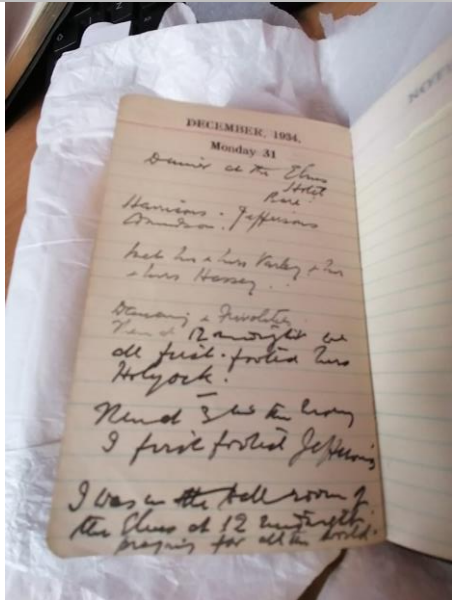 DECEMBER, 1934.
Monday 31
Dinner at the Elms
Hotel
Harrisons. Jeffersons
Varley & Mr
& Mrs Hassey.
Dancing & Frivolities.
12 midnight we
all first-footed Mrs
Holyock.
3 in the
I first footed Jeffersons
I was in the ball room of
the Elms at 12 midnight
praying for all the world.
NOTES